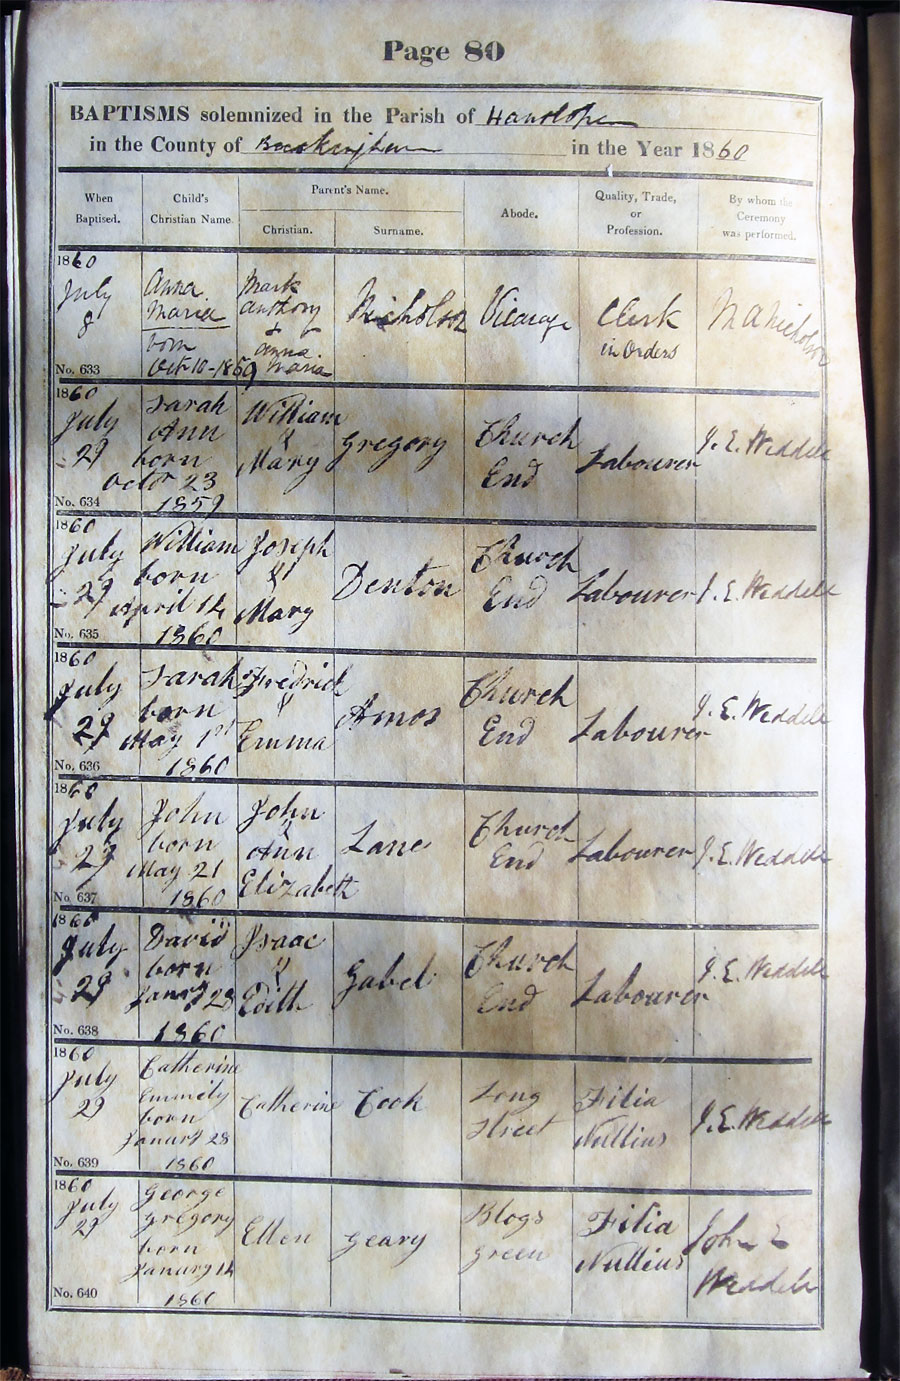 Page 80
BAPTISMS solemnized in the Parish of Hanslope
in the County of Buckingham in the Year 1860
When Baptised.
Child's Christian Name.
Parent's Name.
Christian.
Surname.
Abode.
Quality, Trade, or Profession.
By whom the Ceremony was performed.
1860
July
8
No. 633
Anna
Maria
born
Oct 10-1859
Mark
Anthony
&
Anna
Maria
Nicholson
Vicarage
Clerk
in Orders
M A Nicholson
1860
July
29
No. 634
Sarah
Ann
born
Octor 23
1859
William
&
Mary
Gregory
Church
End
Labourer
J. E. Weddell
1860
July
29
No. 635
William
born
April 14
1860
Joseph
&
Mary
Denton
Church
End
Labourer
J. E. Weddell
1860
July
29
No. 636
Sarah
born
May 1st
1860
Fredrick
&
Emma
Amos
Church
End
Labourer
J. E. Weddell
1860
July
29
No. 637
John
born
May 21
1860
John
&
Ann
Elizabeth
Lane
Church
End
Labourer
J. E. Weddell
1860
July
29
No. 638
David
born
Janry 28
1860
Isaac
&
Edith
Gabel
Church
End
Labourer
J. E. Weddell
1860
July
29
No. 639
Catherine
Emmily
born
Janary 28
1860
Catherine
Cook
Long
Street
Filia
Nullius
J. E. Weddell
1860
July
29
No. 640
George
Gregory
born
Janary 14
1860
Ellen
Geary
Blogs
Green
Filia
Nullius
John E
Weddell